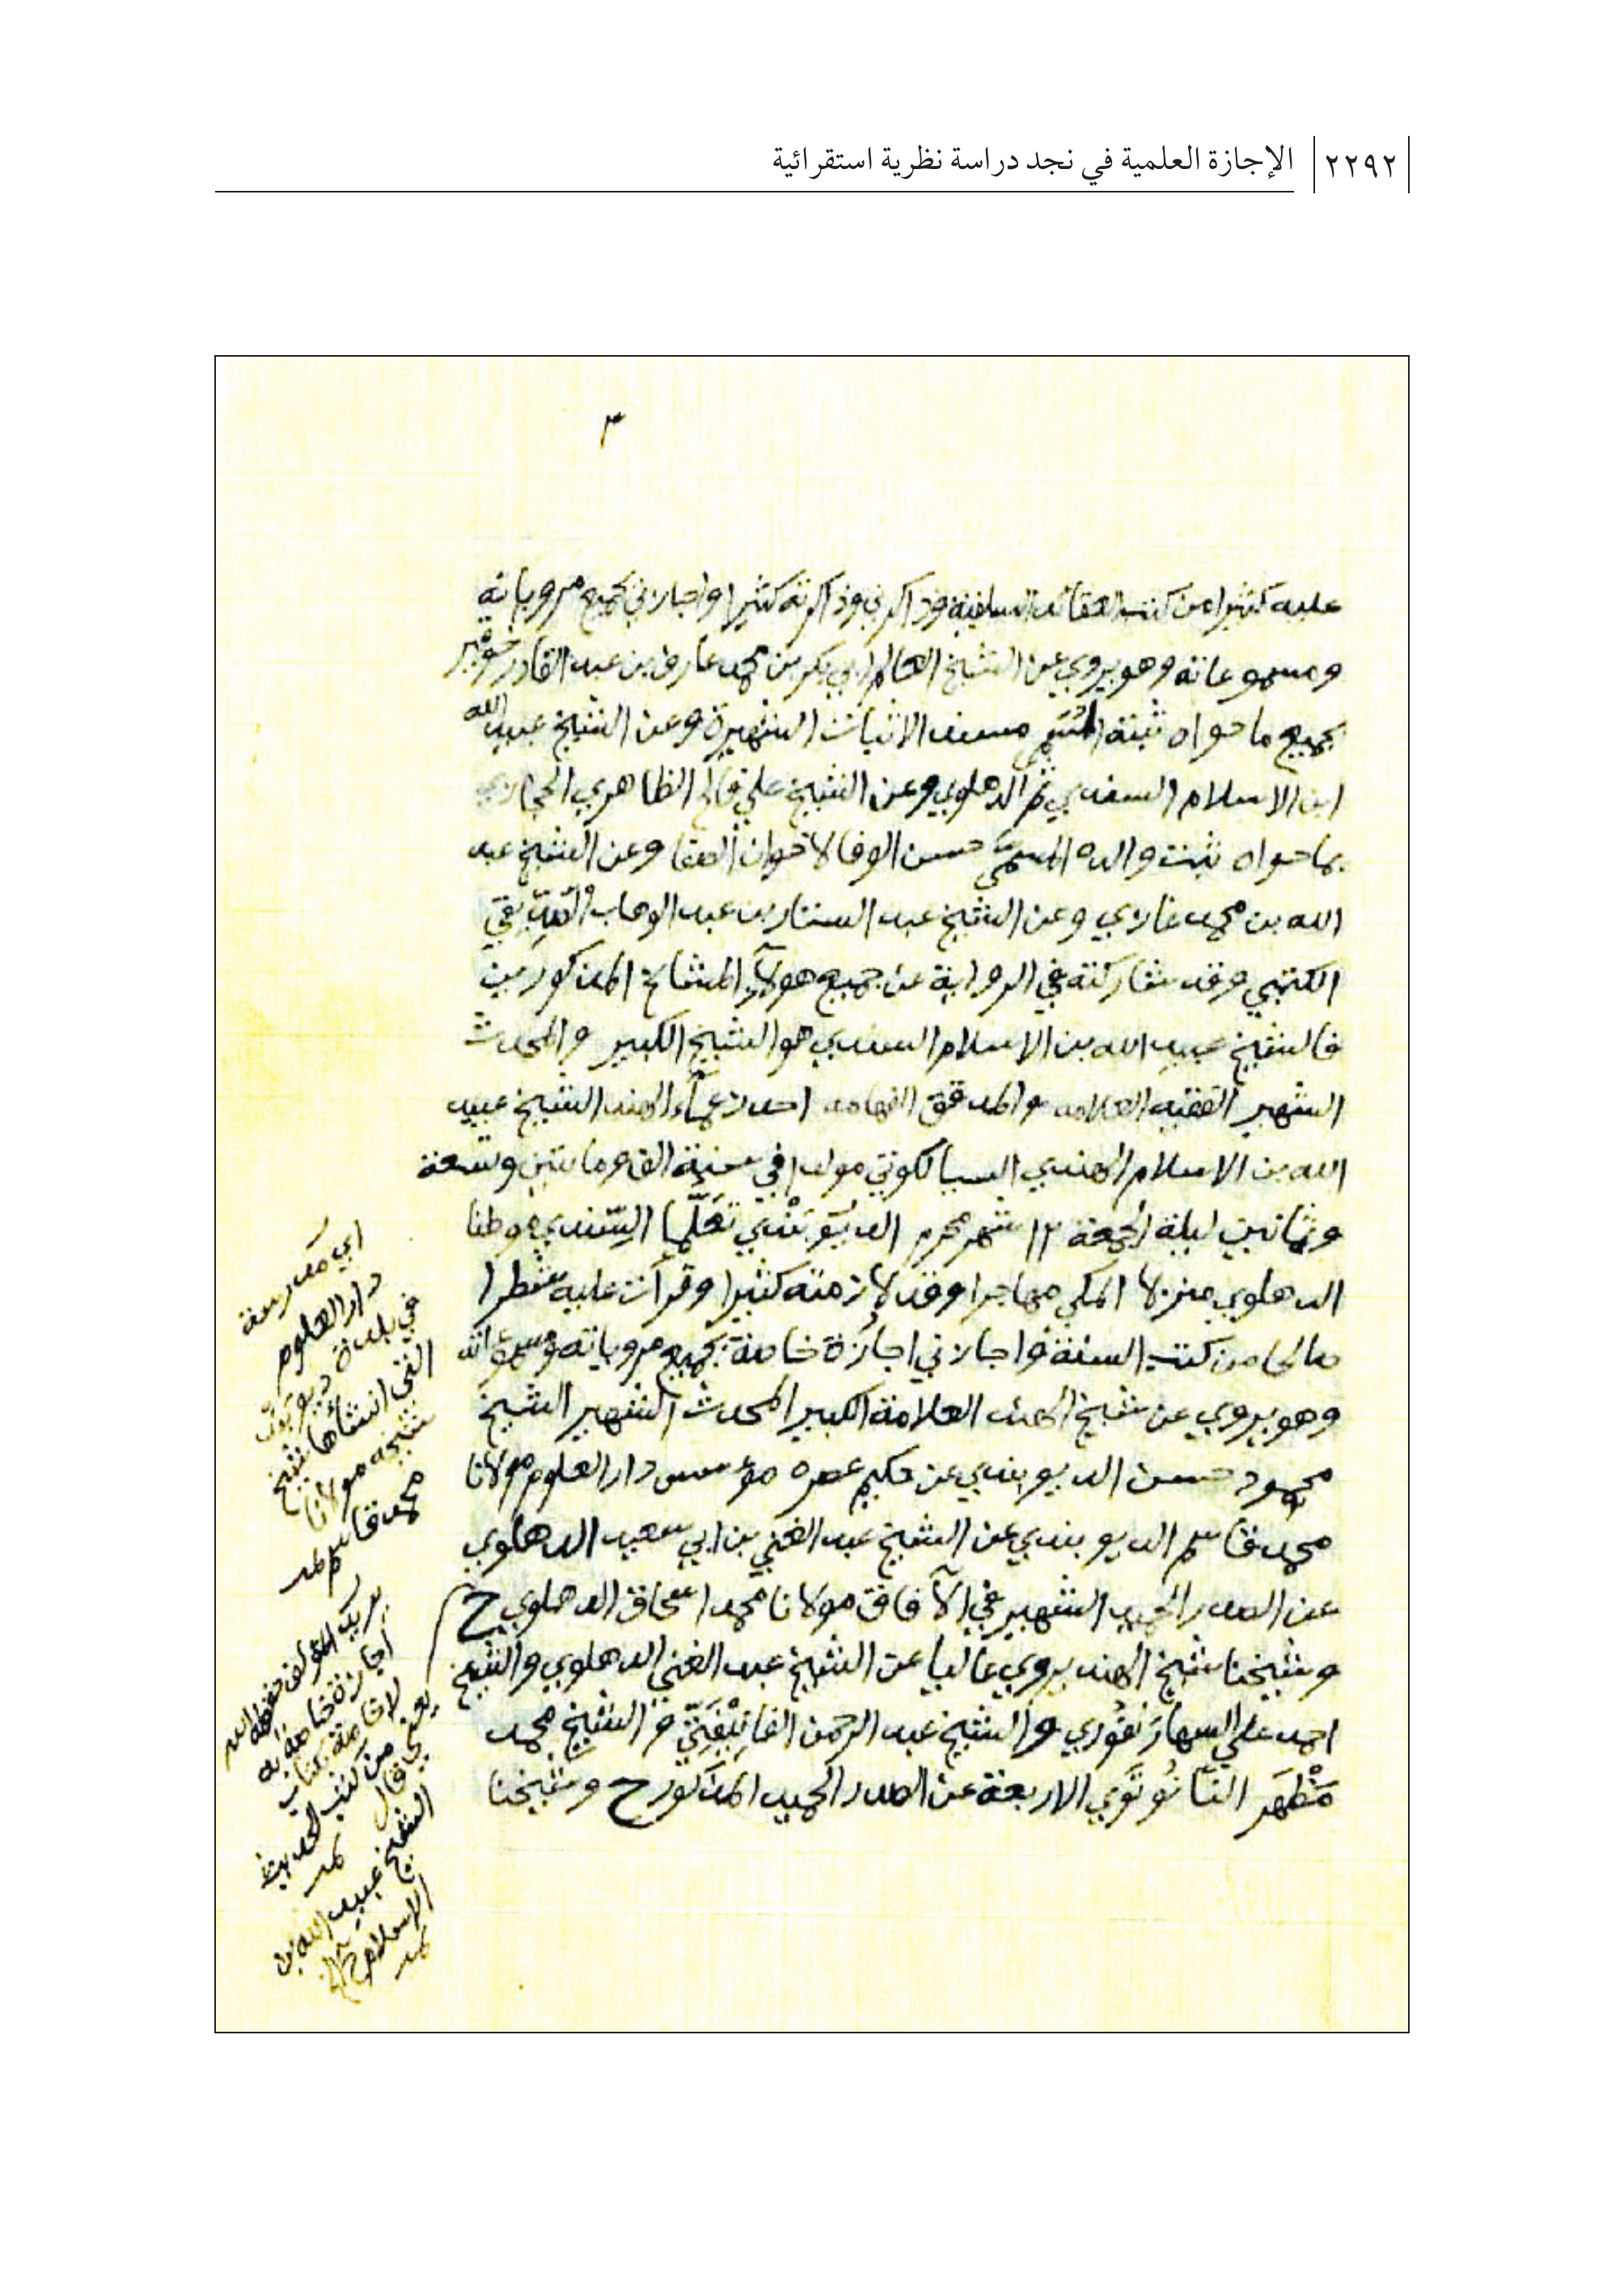 ٢٢٩٢ الإجازة العلمية في نجد دراسة نظرية استقرائية
٣
عليه كثيرا من كتب العقائد السلفية وذاكرني وذاكرته كثيرا واجازني بجميع مروياته
ومسموعاته وهو يروي عن الشيخ العالم ابي بكر بن محمد عارف بن عبد القادر خوقير
بجميع ما حواه ثبته المسمى مسند الاثبات الشهيرة وعن الشيخ عبيد الله
ابن الاسلام السندي ثم الدهلوي وعن الشيخ علي فالح الظاهري الحجازي
بما حواه ثبت والده المسمى حسن الوفا لاخوان الصفا وعن الشيخ عبد
الله بن محمد غازي وعن الشيخ عبد الستار بن عبد الوهاب الصديقي
الكتبي وقد شاركته في الرواية عن جميع هولآء المشائخ المذكورين
فالشيخ عبيد الله بن الاسلام السندي هو الشيخ الكبير والمحدث
الشهير الفقيه العلامه والمدقق الفهامه احد زعمآء الهند الشيخ عبيد
الله بن الاسلام الهندي السيالكوتي مولدا في سنة الف ومائتين وتسعة
وثمانين ليلة الجمعة ١٢ شهر محرم الديوبندي تعلما السندي وطنا
الدهلوي منزلا المكي مهاجرا وقد لازمته كثيرا وقرأت عليه شطرا
صالحا من كتب السنة واجازني اجازة خاصة بجميع مروياته ومسموعاته
وهو يروي عن شيخ الهند العلامة الكبير المحدث الشهير الشيخ
محمود حسن الديوبندي عن حكيم عصره مؤسس دار العلوم مولانا
محمد قاسم الديوبندي عن الشيخ عبد الغني بن ابي سعيد الدهلوي
عن الصدر الحميد الشهير في الآفاق مولانا محمد اسحاق الدهلوي ح
وشيخنا شيخ الهند يروي عاليا عن الشيخ عبد الغني الدهلوي والشيخ
احمد علي السهارنفوري والشيخ عبد الرحمن الفانيفتي والشيخ محمد
مظهر النانوتوي الاربعة عن الصدر الحميد المذكور ح وشيخنا
اي مدرسة
دار العلوم
في بلدة ديوبند
التي انشأها شيخ
شيخه مولانا
محمد قاسم
يريد المؤلف حفظه الله
اجازة خاصة به
لا خاصة بكتاب
من كتب الحديث
يعني قال
الشيخ عبيد الله بن
الاسلام